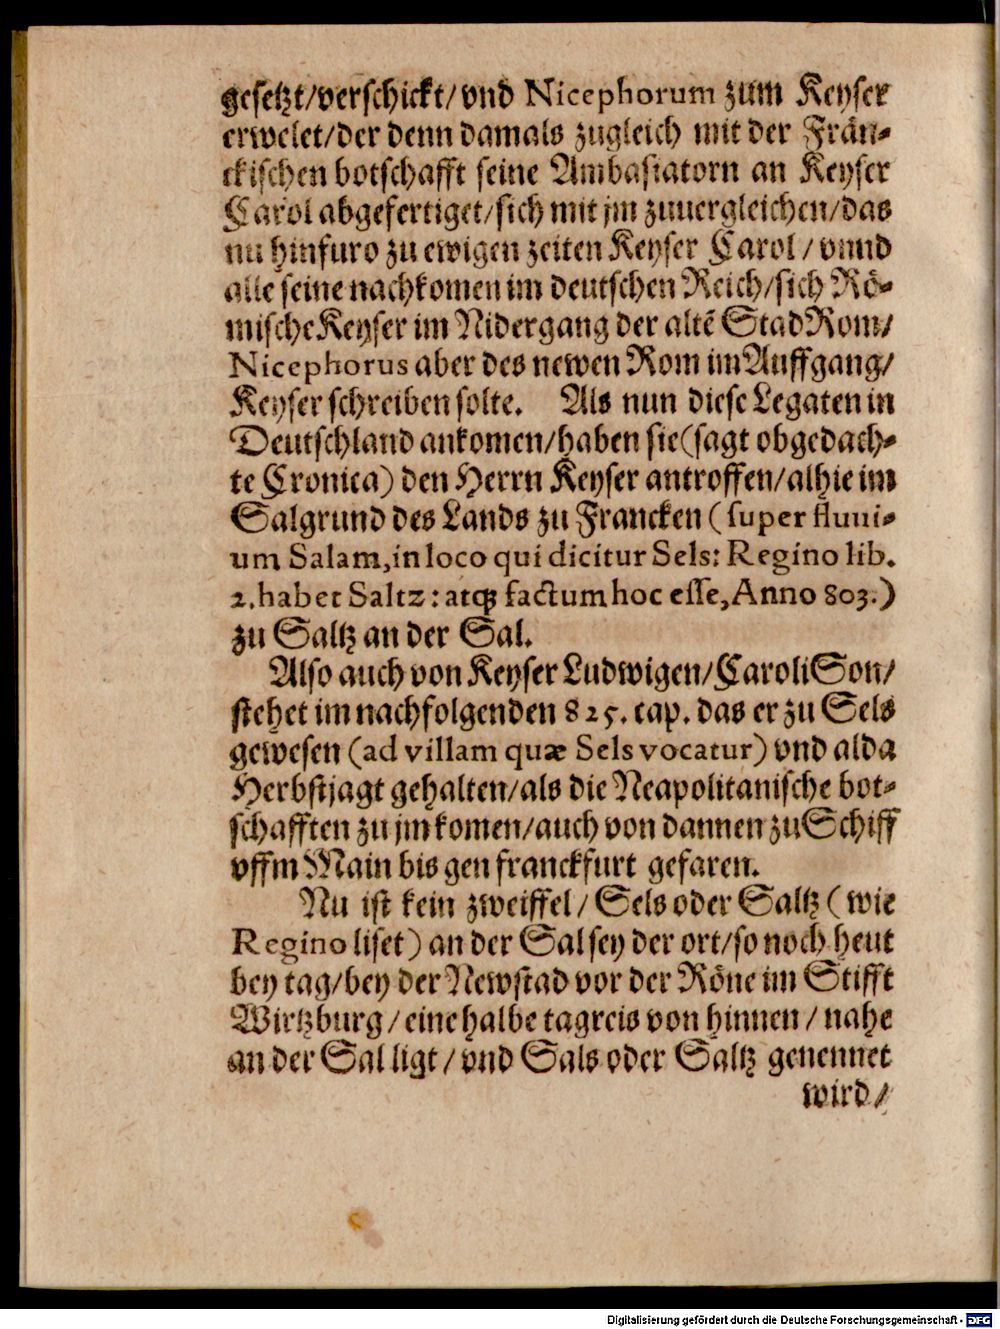 gesetzt/verschickt/vnd Nicephorum zum Keyser
erwelet/der denn damals zugleich mit der Frän-
ckischen botschafft seine Ambasiatorn an Keyser
Carol abgefertiget/sich mit jm zuuergleichen/das
nu hinfuro zu ewigen zeiten Keyser Carol/vnnd
alle seine nachkomen im deutschen Reich/sich Rö-
mische Keyser im Nidergang der altē Stad Rom/
Nicephorus aber des newen Rom im Auffgang/
Keyser schreiben solte. Als nun diese Legaten in
Deutschland ankomen/haben sie (sagt obgedach-
te Cronica) den Herrn Keyser antroffen/alhie im
Salgrund des Lands zu Francken (super fluui-
um Salam, in loco qui dicitur Sels: Regino lib.
2. habet Saltz: atqꝫ factum hoc esse, Anno 803.)
zu Saltz an der Sal.
Also auch von Keyser Ludwigen/Caroli Son/
stehet im nachfolgenden 825. cap. das er zu Sels
gewesen (ad villam quæ Sels vocatur) vnd alda
Herbstjagt gehalten/als die Neapolitanische bot-
schafften zu jm komen/auch von dannen zu Schiff
vffm Main bis gen franckfurt gefaren.
Nu ist kein zweiffel/Sels oder Saltz (wie
Regino liset) an der Sal sey der ort/so noch heut
bey tag/bey der Newstad vor der Röne im Stifft
Wirtzburg/eine halbe tagreis von hinnen/nahe
an der Sal ligt/vnd Sals oder Saltz genennet
wird/
Digitalisierung gefördert durch die Deutsche Forschungsgemeinschaft - DFG